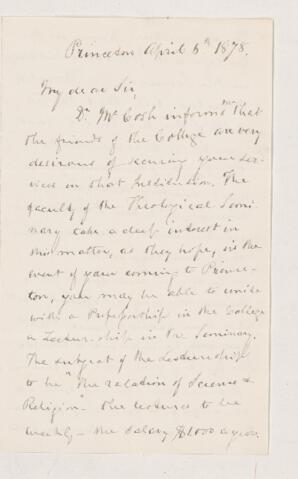 Princeton April 5th 1878.
My dear Sir,
Dr McCosh informs me that
the friends of the College are very
desirous of securing your ser-
vices in that Institution. The
faculty of the Theological Semi-
nary take a deep interest in
this matter, as they hope, in the
event of your coming to Prince-
ton, you may be able to unite
with a Professorship in the College
a Lectureship in the Seminary.
The subject of the Lectureship
to be "The relation of Science &
Religion" - the lectures to be
weekly - the salary $1000 a year.